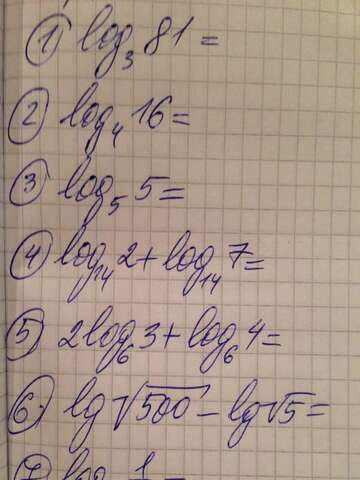 ① log₃ 81 =
② log₄ 16 =
③ log₅ 5 =
④ log₁₄ 2 + log₁₄ 7 =
⑤ 2log₆ 3 + log₆ 4 =
⑥ lg √500 - lg √5 =